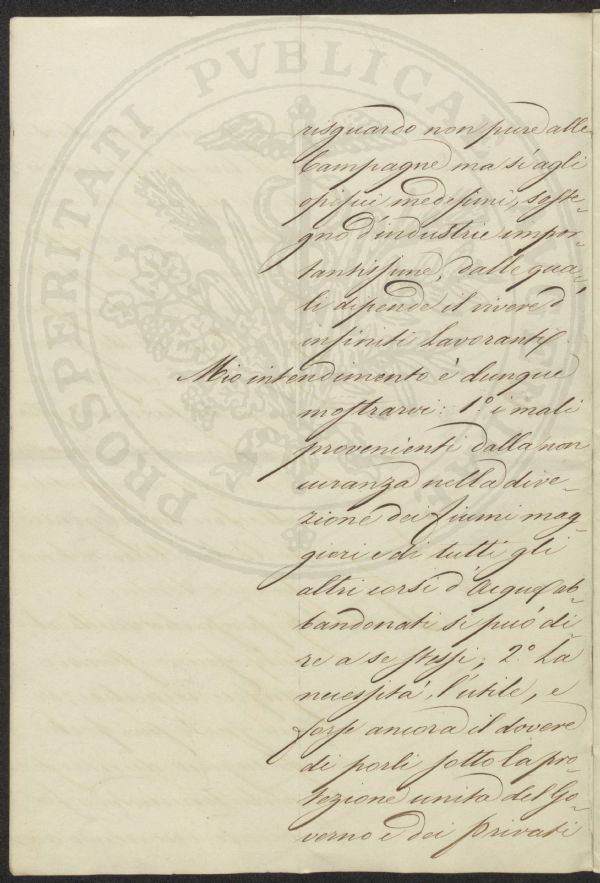 PROSPERITATI PVBLICAE
risguardo non pure alle
Campagne ma sì agli
opificj medesimi, soste-
gno d'industrie impor-
tantissime, dalle qua-
li dipende il vivere d'
infiniti Lavoranti.
Mio intendimento è dunque
mostrarvi: 1.° i mali
provenienti dalla non
curanza nella dire-
zione dei fiumi mag-
giori e di tutti gli
altri corsi d'Acqua ab-
bandonati si può di-
re a se stessi; 2.° La
necessità, l'utile, e
forse ancora il dovere
di porli sotto la pro-
tezione unita del Go-
verno e dei Privati